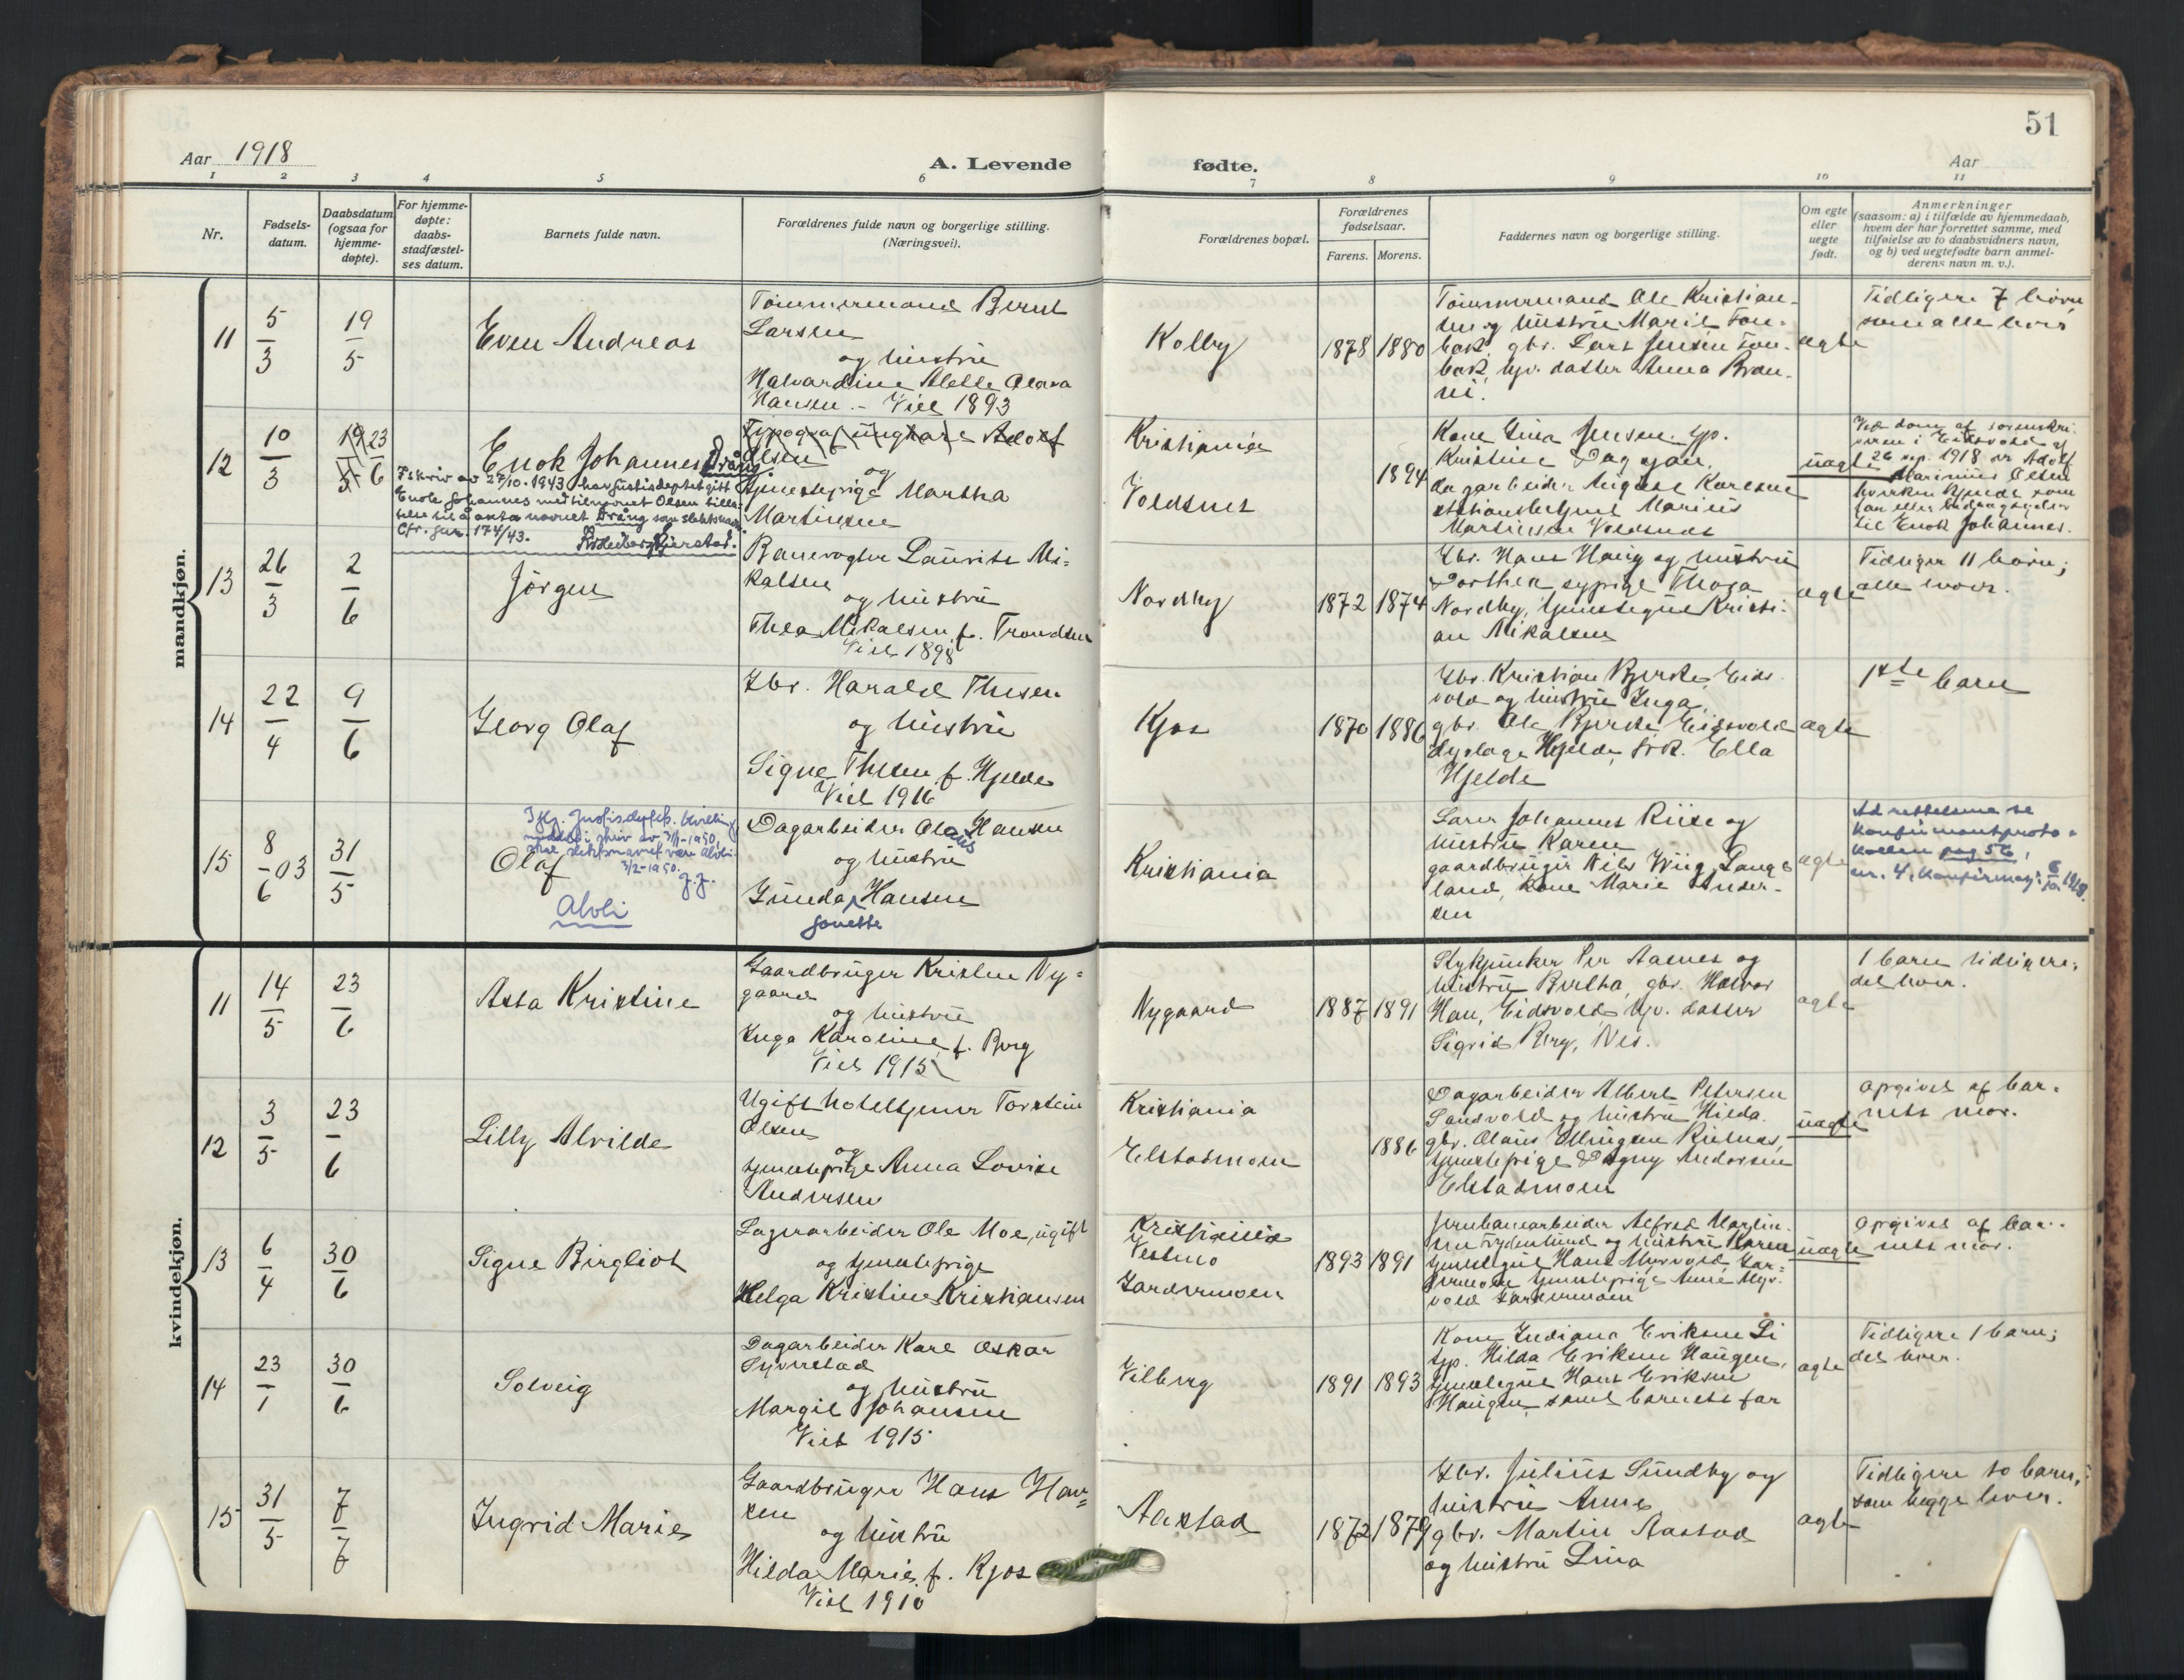 51
Aar 1918
A. Levende
fødte.
Aar
1 2 3 4 5 6 7 8 9 10 11
Nr.
Fødsels-
datum.
Daabsdatum
(ogsaa for
hjemme-
døpte).
For hjemme-
døpte:
daabs-
stadfæstel-
ses datum.
Barnets fulde navn.
Forældrenes fulde navn og borgerlige stilling.
(Næringsvei).
Forældrenes bopæl.
Forældrenes
fødselsaar.
Farens. Morens.
Faddernes navn og borgerlige stilling.
Om egte
eller
uegte
født.
Anmerkninger
(saasom: a) i tilfælde av hjemmedaab,
hvem der har forrettet samme, med
tilføielse av to daabsvidners navn,
og b) ved uegtefødte barn anmel-
derens navn m. v.).
mandkjøn.
11
5/3
19/5
Even Andreas
Tømmermand Bernt
Larsen
og hustru
Halvardine Alette Olava
Hansen. - Viet 1893
Kolby
1878 1880
Tømmermand Ole Kristian-
sen og hustru Marie
gbr. Lars Jensen
datter Anna
ægte
Tidligere 7 børn
som alle lever
12
10/3
19/5 23/6
Enok Johannes Drång
I skriv av 27/10-1943 har Justisdeptet gitt
Enok Johannes med tilnavnet Olsen tilla-
telse til å anta navnet Drång som slektsnavn
Cfr. jur. 174/43.
Typograf ungkarl Adolf
Olsen
og
tjenestepige Martha
Martinsen
Kristiania
Voldsnes
1894
Kone Lina Jensen
Kristine
dagarbeider August Karlsen
Marius
Martinsen Voldsnes
uægte
Ved dom af sorenskri-
veren i Eidsvold af
26 sep. 1918 er Adolf
Marinius Olsen
hverken kjendt som
far eller bidragsyder
til Enok Johannes.
13
26/3
2/6
Jørgen
Banevogter Laurits Mi-
kalsen
og hustru
Thea Mikalsen f. Trondsen
Viet 1898
Nordby
1872 1874
Gbr. Hans Haug og hustru
Dorthea, sypige Thora
Nordby, tjenestegut Kristi-
an Mikalsen
ægte
Tidligere 11 børn;
alle lever.
14
22/4
9/6
Georg Olaf
Gbr. Harald Thesen
og hustru
Signe Thesen f. Hjelde
Viet 1916
Kjos
1870 1886
Gbr. Kristian Bjerke, Eids-
vold og hustru Inga,
gbr. Ole Bjerke Eidsvold
Hjelde, frk. Ella
Hjelde
ægte
1ste barn
15
8/6 03
31/5
Olaf
Alvli
3/2-1950.
Dagarbeider Olaus Hansen
og hustru
Gunda Hansen
Jonette
Kristiania
Johannes Riise og
hustru Karen
gaardbruger Nils Wiig, Lange-
land, Kone Marie Ander-
sen
ægte
Ad rettelserne se
konfirmantproto-
kollen pag 56,
nr. 4,
kvindekjøn.
11
14/5
23/6
Asta Kristine
Gaardbruger Kristen Ny-
gaard
og hustru
Inga Karoline f. Berg
Viet 1915
Nygaard
1887 1891
Stykjunker Per Aasnes og
hustru Bertha, gbr. Halvor
Hau, Eidsvold, hjv. datter
Sigrid Berg, Nes.
ægte
1 barn tidligere;
det lever.
12
3/5
23/6
Lilly Alvilde
Ugift hoteltjener Torstein
Olsen
og
tjenestepige Anna Lovise
Andersen
Kristiania
Elstadmoen
1886
Dagarbeider Albert Petersen
Sandvold og hustru Hilda.
gbr. Olaus Ellingsen
tjenestepige Dagny Andersen
Elstadmoen
uægte
opgivet af bar-
nets mor.
13
6/4
30/6
Signe Birgliot
Lagerarbeider Ole Moe, ugift
og tjenestepige
Helga Kristine Kristiansen
Kristiania
Vestmo
Gardermoen
1893 1891
Jernbanearbeider Alfred Martin-
sen Frydenlund og hustru Karen
tjenestegut Hans Myrvold, Gar-
dermoen tjenestepige Anne Myr-
vold Gardermoen
uægte
opgivet af bar-
nets mor.
14
23/1
30/6
Solveig
Dagarbeider Karl Oskar
Syverstad
og hustru
Margit Johansen
Viet 1915
Vilberg
1891 1893
Kone Indiana Eriksen Li
typ. Hilda Eriksen Haugen,
tjenestegut Hans Eriksen
Haugen, samt barnets far
ægte
Tidligere 1 barn;
det lever.
15
31/5
7/7
Ingrid Marie
Gaardbruger Hans Han-
sen
og hustru
Hilda Marie f. Kjos
Viet 1910
Aastad
1872 1879
Gbr. Julius Sundby og
hustru Anne
gbr. Martin Aastad
og hustru Lina
ægte
Tidligere to barn,
som begge lever.